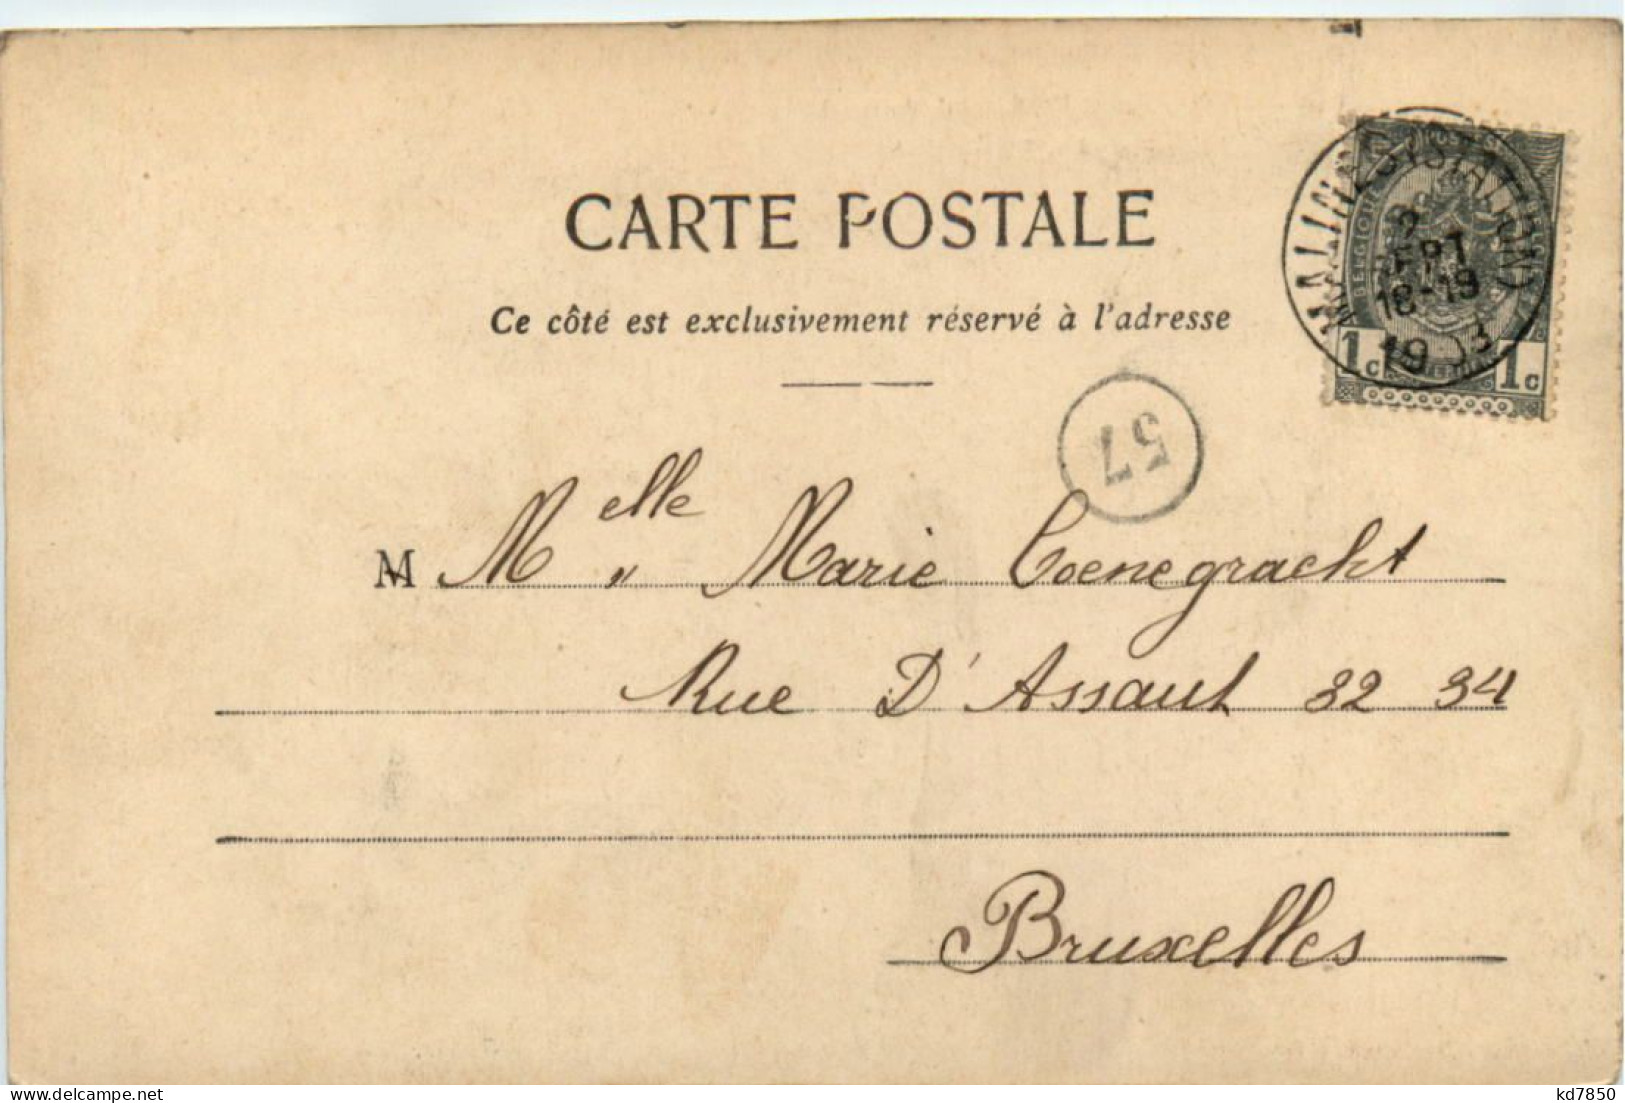 CARTE POSTALE
Ce côté est exclusivement réservé à l'adresse
MALINES (STATION)
2
SEPT
18-19
1903
BELGIQUE
1c 1c
57
M Melle " Marie Coenegracht
Rue D'Assaut 32 34
Bruxelles
delcampe.net
kd7850